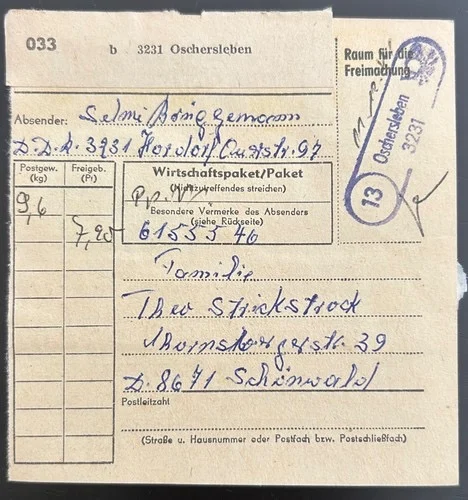 033
b 3231 Oschersleben
Raum für die
Freimachung
Oschersleben
3231
13
Absender: Selmi Brüggemann
D.D.R. 3231 Hordorf 97
Postgew. (kg)
Freigeb. (Pf)
Wirtschaftspaket/Paket
(Nichtzutreffendes streichen)
Besondere Vermerke des Absenders
(siehe Rückseite)
9,6
7,20
61555 46
Familie
Theo Strickstrock
39
D. 8671 Schönwald
Postleitzahl
(Straße u. Hausnummer oder Postfach bzw. Postschließfach)